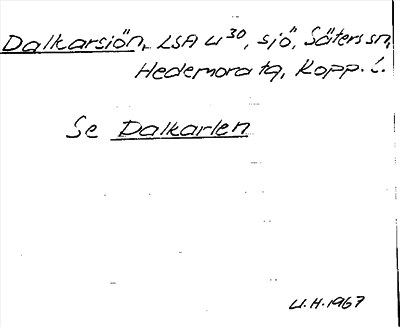 Dalkarsjön, LSA U³⁰, sjö, Säters sn,
Hedemora tg, Kopp. l.
Se Dalkarlen
U.H. 1967